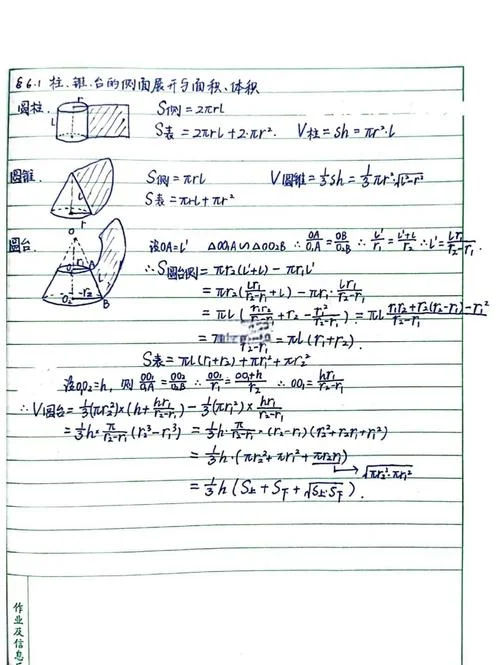 §6.1 柱、锥、台的侧面展开与面积、体积
圆柱. S侧=2πrl
S表=2πrl+2·πr². V柱=sh=πr²·l
圆锥. S侧=πrl V圆锥=⅓sh=⅓πr²·√(l²-r²)
S表=πrl+πr²
圆台. 设OA=l' △OO₁A∽△OO₂B ∴OA/O₁A=OB/O₂B ∴l'/r₁=(l'+l)/r₂ ∴l'=lr₁/(r₂-r₁)
∴S圆台侧=πr₂(l'+l)-πr₁l'
=πr₂(lr₁/(r₂-r₁)+l)-πr₁·lr₁/(r₂-r₁)
=πl(r₁r₂/(r₂-r₁)+r₂-r₁²/(r₂-r₁))=πl (r₁r₂+r₂(r₂-r₁)-r₁²)/(r₂-r₁)
=πl(r₁+r₂).
S表=πl(r₁+r₂)+πr₁²+πr₂²
设O₁O₂=h, 则 OO₁/O₁A=OO₂/O₂B ∴OO₁/r₁=(OO₁+h)/r₂ ∴OO₁=hr₁/(r₂-r₁)
∴V圆台=⅓(πr₂²)×(h+hr₁/(r₂-r₁))-⅓(πr₁²)×hr₁/(r₂-r₁)
=⅓h×π/(r₂-r₁)(r₂³-r₁³)=⅓h·π/(r₂-r₁)×(r₂-r₁)(r₂²+r₂r₁+r₁²)
=⅓h·(πr₂²+πr₁²+πr₂r₁)
√(πr₂²·πr₁²)
=⅓h(S上+S下+√(S上·S下)).
作业及信息